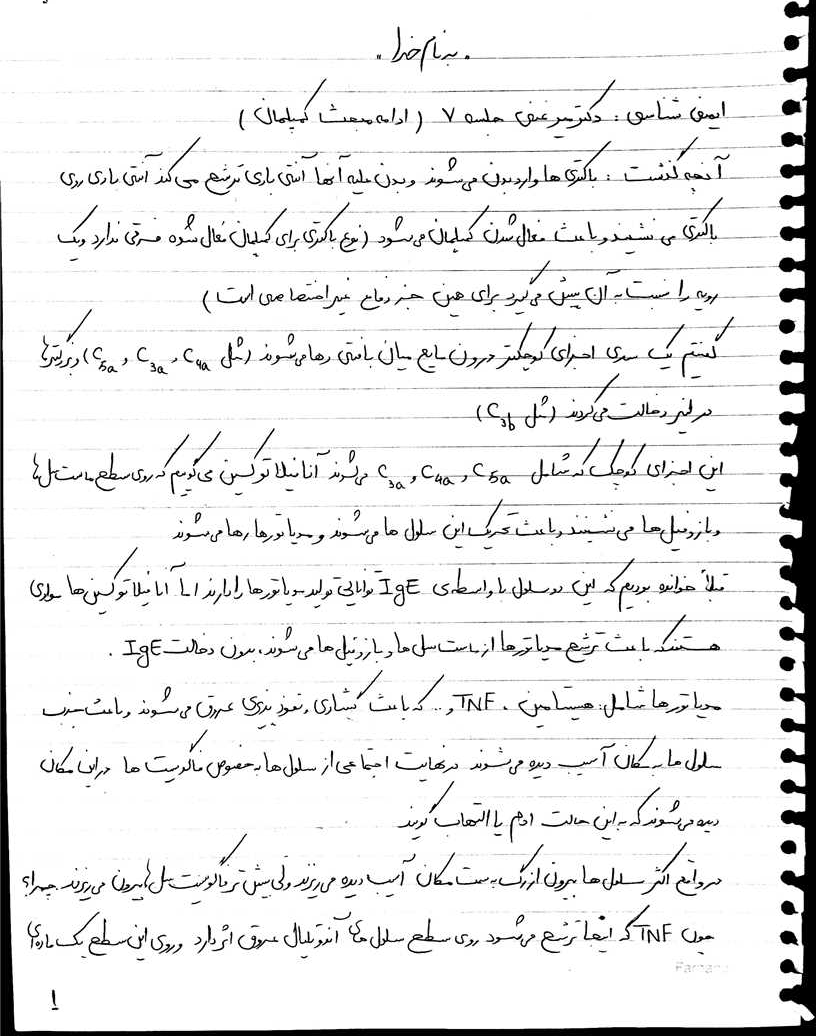 . به نام خدا .
ایمنی شناسی : دکتر میرغنی جلسه ۷ ( ادامه مبحث کمپلمان )
آنچه گذشت : باکتری ها وارد بدن می‌شوند و بدن علیه آنها آنتی بادی ترشح می کند آنتی بادی روی
باکتری می نشیند و باعث فعال شدن کمپلمان می‌شود (نوع باکتری برای کمپلمان فعال شده فرقی ندارد و یک
رویه را نسبت به آن پیش می‌گیرد برای همین جزء دفاع غیر اختصاصی است )
گفتیم یک سری اجزای کوچکتر درون مایع میان بافتی رها می‌شوند (مثل C4a و C3a و C5a) و بزرگترها
در لیز دخالت می‌کردند (مثل C3b)
این اجزای کوچک که شامل C5a و C4a و C3a می‌شوند آنافیلاتوکسین می‌گوییم که روی سطح ماست سل ها
و بازوفیل ها می نشینند و باعث تحریک این سلول ها می‌شوند و مدیاتورها رها می‌شوند
قبلاً خوانده بودیم که این دو سلول با واسطه‌ی IgE توانایی تولید مدیاتورها را دارند اما آنافیلاتوکسین ها موادی
هستند که باعث ترشح مدیاتورها از ماست سل ها و بازوفیل ها می‌شوند، بدون دخالت IgE .
مدیاتورها شامل: هیستامین ، TNF و .. که باعث گشادی و نفوذ پذیری عروق می‌شوند و باعث جذب
سلول ها به مکان آسیب دیده می‌شوند در نهایت اجتماعی از سلول ها به خصوص فاگوسیت ها در این مکان
دیده می‌شوند که به این حالت ادم یا التهاب گویند
در واقع اکثر سلول ها بیرون از رگ به سمت مکان آسیب دیده می‌ریزند ولی بیش تر فاگوسیت سل ها بیرون می‌ریزند چرا؟
چون TNF که اینجا ترشح می‌شود روی سطح سلول های آندوتلیال عروق اثر دارد و روی این سطح یک ماده‌ای
۱